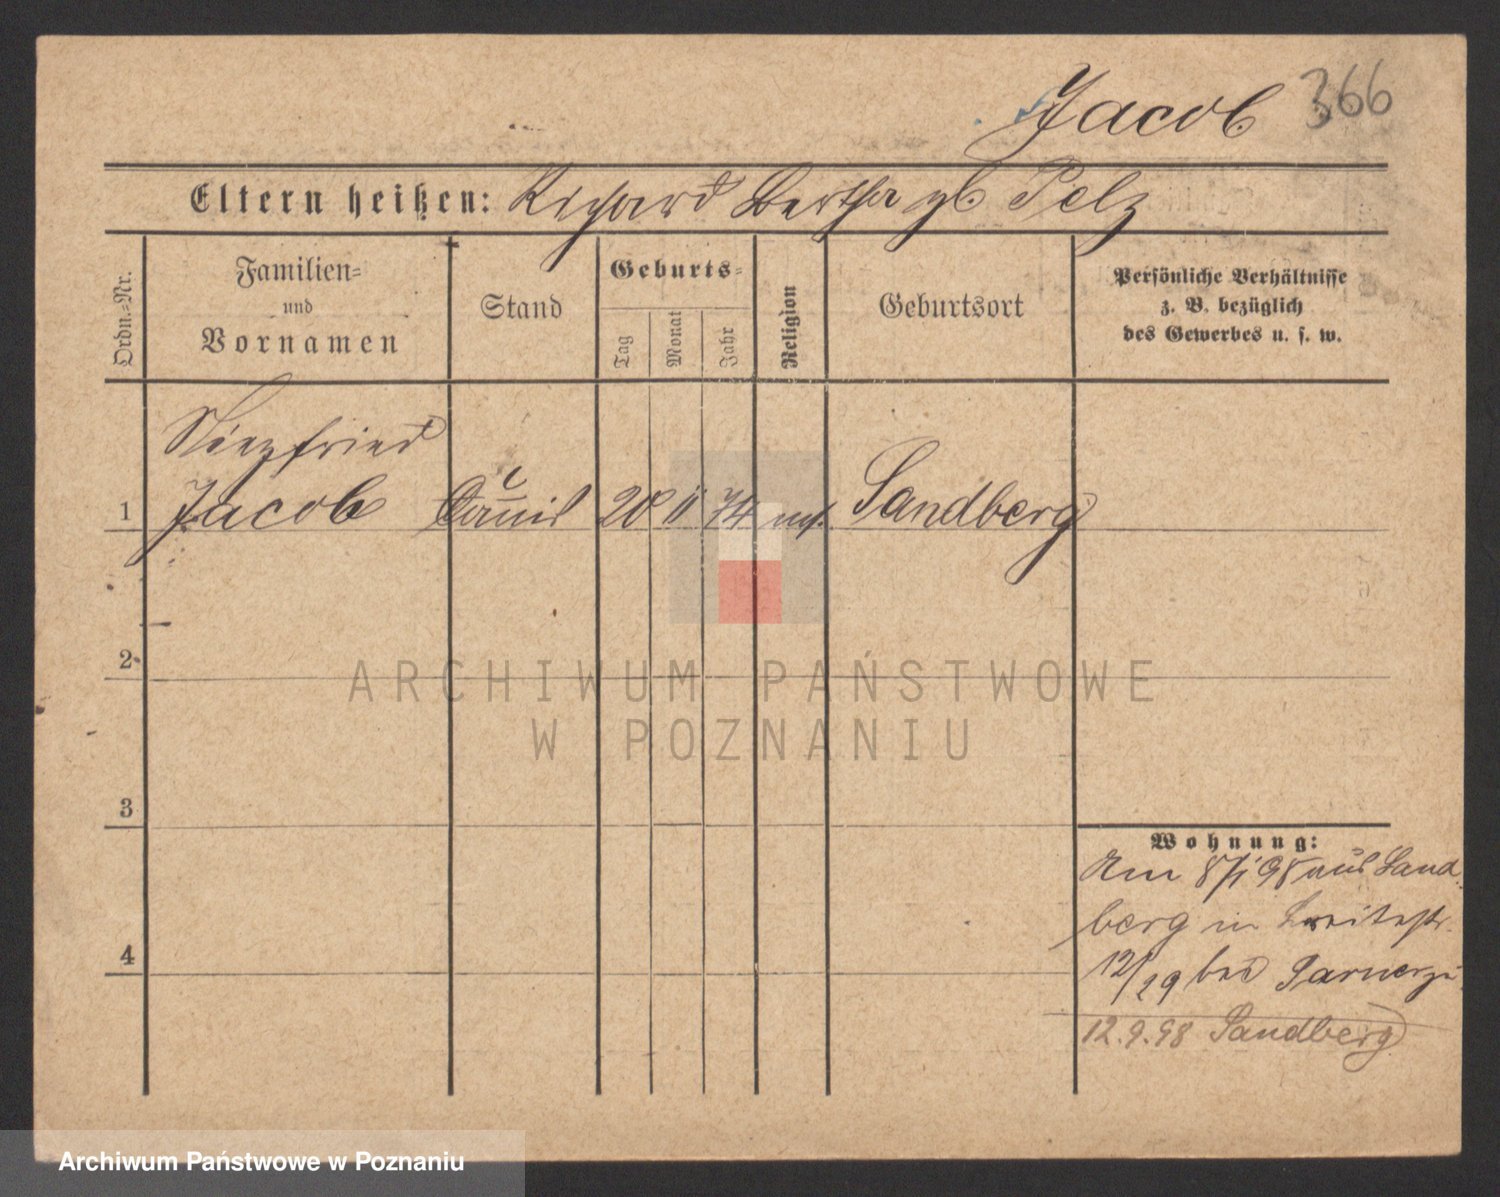 Jacob 366
Eltern heißen: Richard Bertha gb Pelz
Ordn.=Nr.
Familien=
und
Vornamen
Stand
Geburts=
Tag
Monat
Jahr
Religion
Geburtsort
Persönliche Verhältnisse
z. B. bezüglich
des Gewerbes u. s. w.
Siegfried
1 Jacob 20 11 74 Sandberg
2
3
4
Wohnung:
Am 8/1 98 aus Sand
berg in Breitestr.
12/19 bei
12.9.98 Sandberg
ARCHIWUM PAŃSTWOWE
W POZNANIU
Archiwum Państwowe w Poznaniu